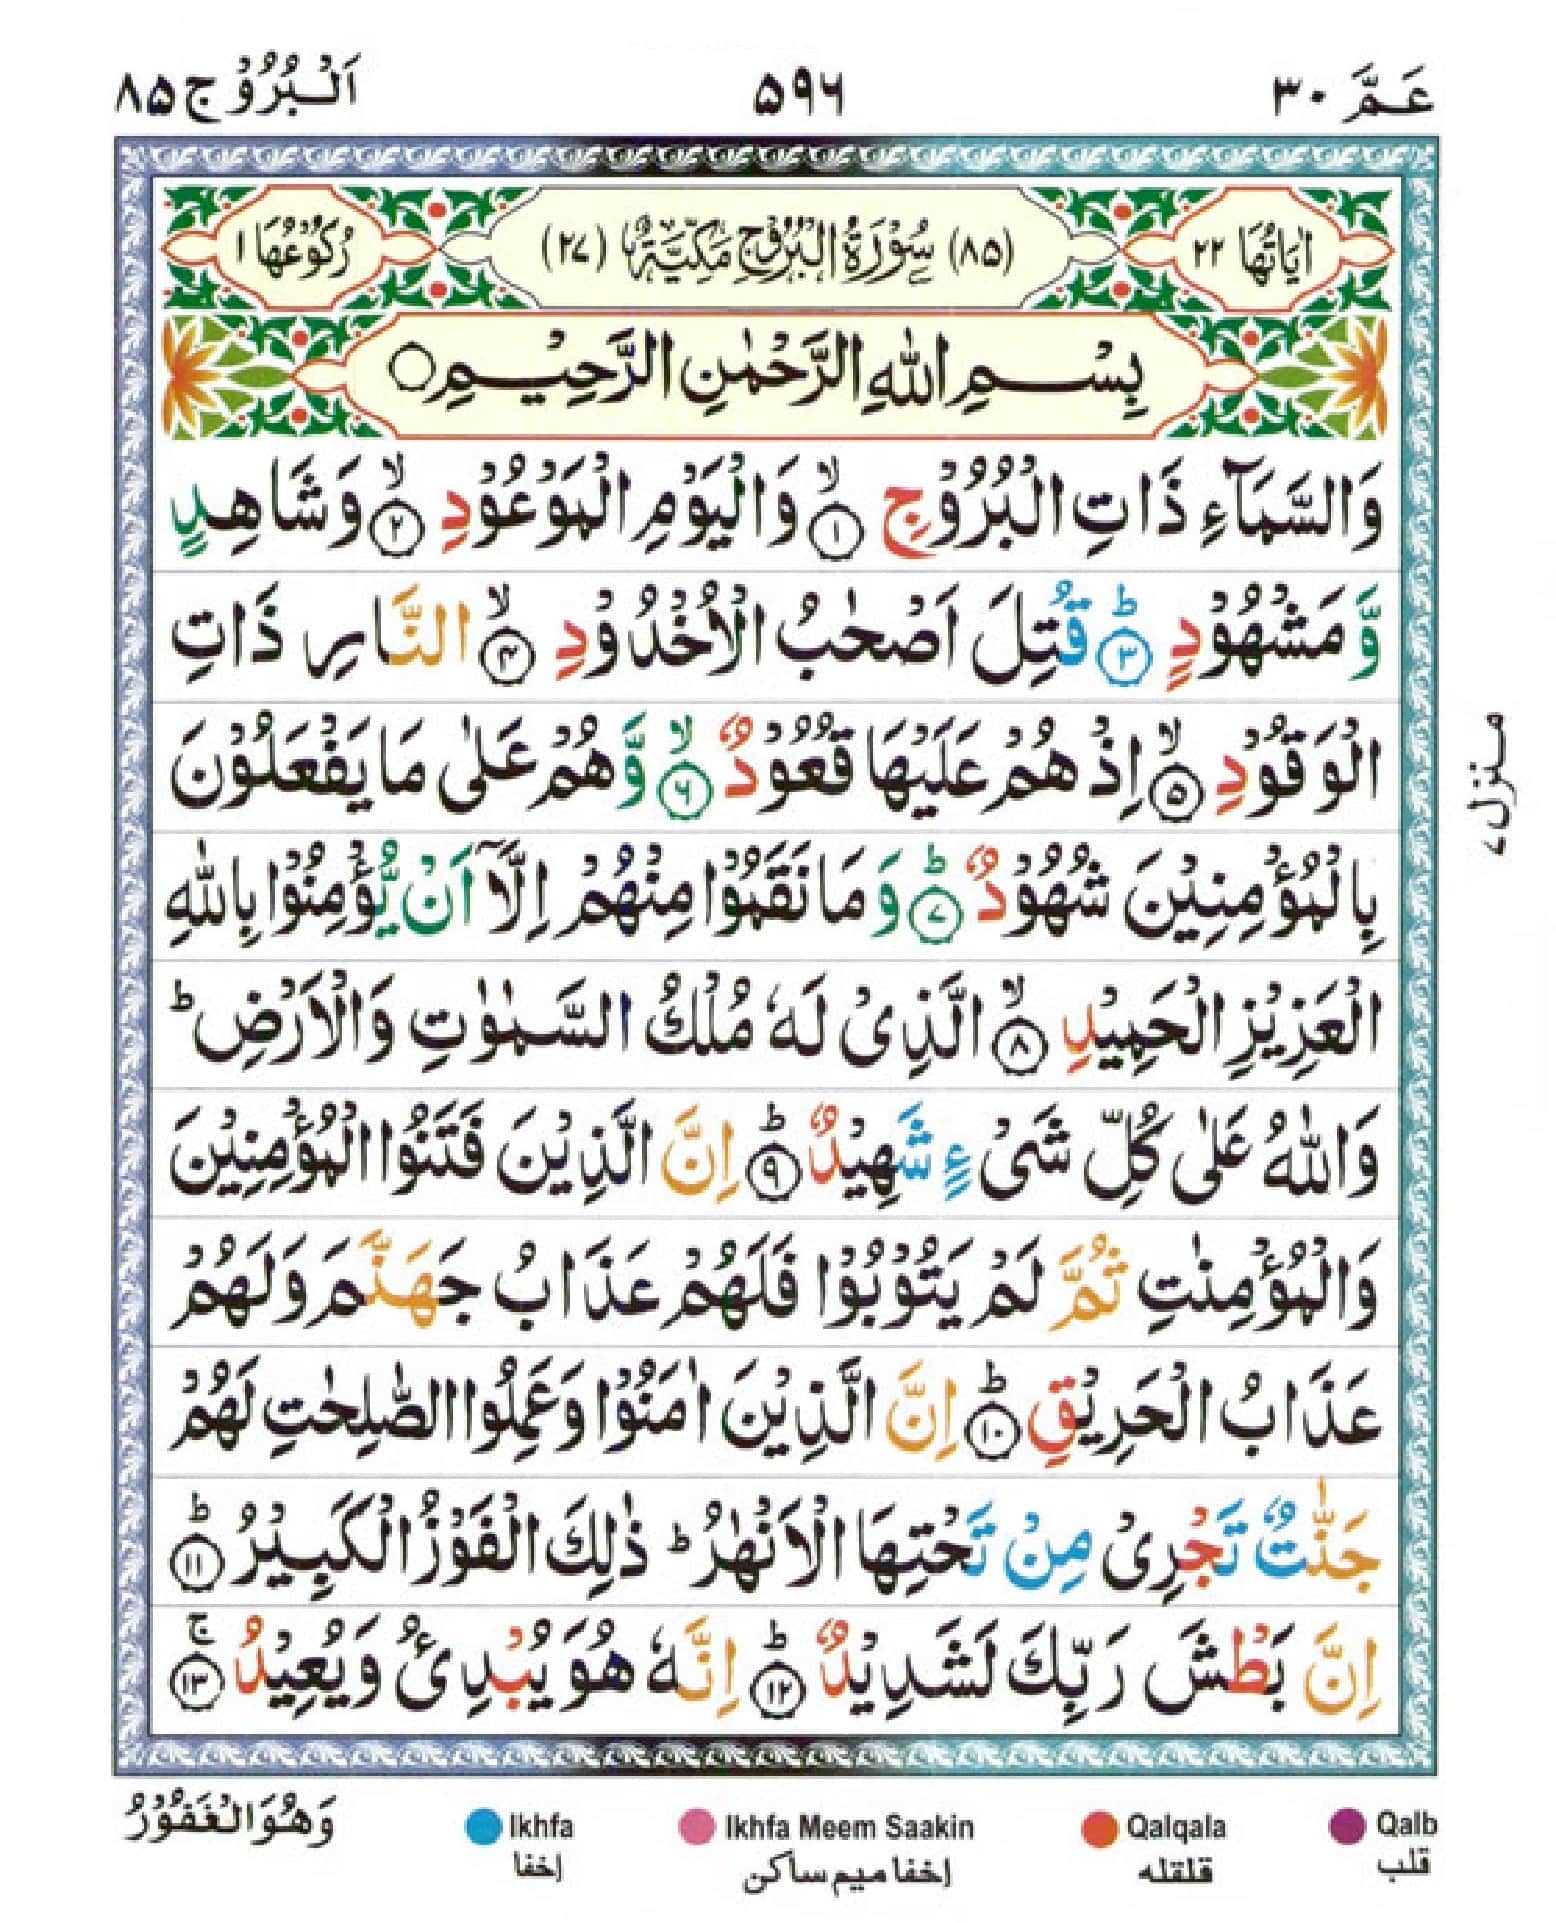 عَمَّ ٣٠
٥٩٦
اَلْبُرُوْج ٨٥
اٰيَاتُهَا ٢٢
(٨٥) سُوْرَةُ الْبُرُوْجِ مَكِّيَّةٌ (٢٧)
رُكُوْعُهَا ١
بِسْمِ اللّٰهِ الرَّحْمٰنِ الرَّحِيْمِ ○
وَالسَّمَآءِ ذَاتِ الْبُرُوْجِ ۙ﴿١﴾ وَالْيَوْمِ الْمَوْعُوْدِ ۙ﴿٢﴾ وَشَاهِدٍ
وَّ مَشْهُوْدٍ ؕ﴿٣﴾ قُتِلَ اَصْحٰبُ الْاُخْدُوْدِ ۙ﴿٤﴾ النَّارِ ذَاتِ
الْوَقُوْدِ ۙ﴿٥﴾ اِذْ هُمْ عَلَيْهَا قُعُوْدٌ ۙ﴿٦﴾ وَّهُمْ عَلٰى مَا يَفْعَلُوْنَ
بِالْمُؤْمِنِيْنَ شُهُوْدٌ ؕ﴿٧﴾ وَمَا نَقَمُوْا مِنْهُمْ اِلَّآ اَنْ يُّؤْمِنُوْا بِاللّٰهِ
الْعَزِيْزِ الْحَمِيْدِ ۙ﴿٨﴾ الَّذِىْ لَهٗ مُلْكُ السَّمٰوٰتِ وَالْاَرْضِ ؕ
وَاللّٰهُ عَلٰى كُلِّ شَىْءٍ شَهِيْدٌ ؕ﴿٩﴾ اِنَّ الَّذِيْنَ فَتَنُوا الْمُؤْمِنِيْنَ
وَالْمُؤْمِنٰتِ ثُمَّ لَمْ يَتُوْبُوْا فَلَهُمْ عَذَابُ جَهَنَّمَ وَلَهُمْ
عَذَابُ الْحَرِيْقِ ؕ﴿١٠﴾ اِنَّ الَّذِيْنَ اٰمَنُوْا وَعَمِلُوا الصّٰلِحٰتِ لَهُمْ
جَنّٰتٌ تَجْرِىْ مِنْ تَحْتِهَا الْاَنْهٰرُ ؕ ذٰلِكَ الْفَوْزُ الْكَبِيْرُ ؕ﴿١١﴾
اِنَّ بَطْشَ رَبِّكَ لَشَدِيْدٌ ؕ﴿١٢﴾ اِنَّهٗ هُوَ يُبْدِئُ وَيُعِيْدُ ۚ﴿١٣﴾
منزل ٧
وَهُوَ الْغَفُوْرُ
Ikhfa
اخفا
Ikhfa Meem Saakin
اخفا ميم ساكن
Qalqala
قلقله
Qalb
قلب